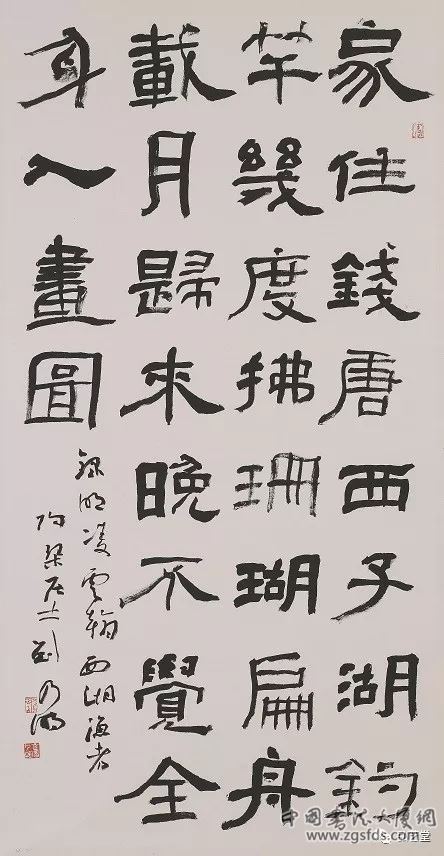 家住錢唐西子湖釣
竿幾度拂珊瑚扁舟
載月歸來晚不覺全
身入畫圖
錄明凌雲翰西湖漁者
居士劉乃
中国书法大厦网
www.zgsfds.com